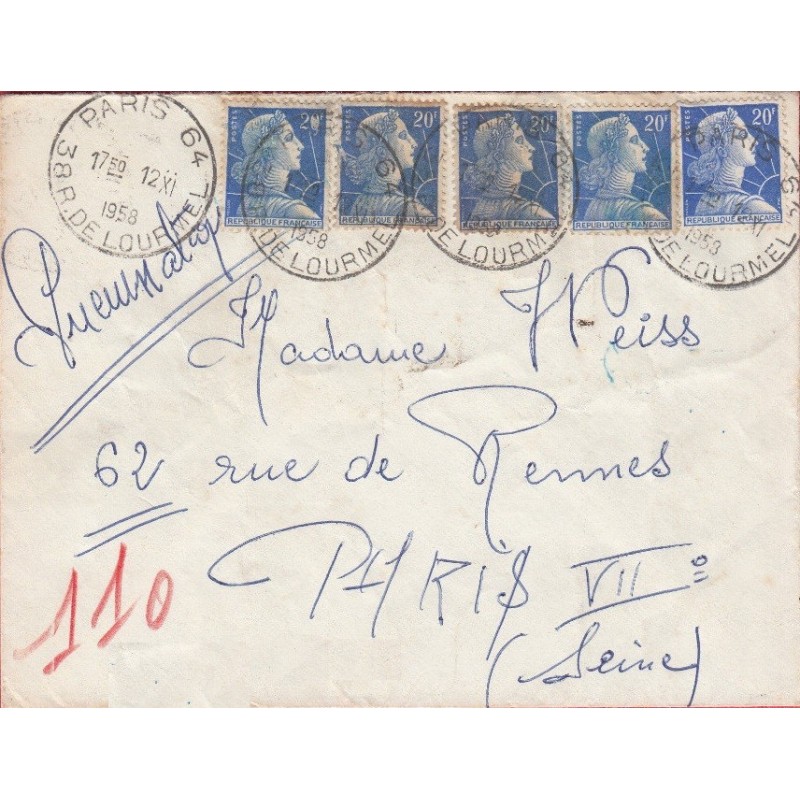 PARIS 64
17 50 12 XI
1958
38 R. DE LOURMEL
POSTES 20F
REPUBLIQUE FRANÇAISE
POSTES 20F
REPUBLIQUE FRANÇAISE
20F
REPUBLIQUE FRANÇAISE
POSTES 20F
REPUBLIQUE FRANÇAISE
POSTES 20F
REPUBLIQUE FRANÇAISE
PARIS 64
1958
DE LOURMEL
DE LOURMEL
PARIS 64
XI
1958
DE LOURMEL
Pneumatique
Madame Weiss
62 rue de Rennes
PARIS VII e
(Seine)
110